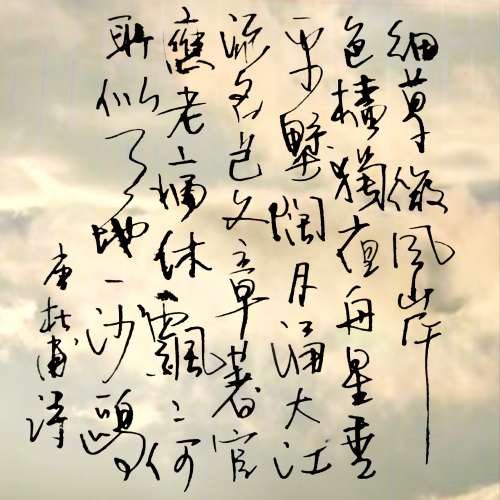 細草微風岸
危檣獨夜舟星垂
平野闊月涌大江
流名岂文章著官
應老病休飄〻何
所似天地一沙鷗
唐杜甫詩